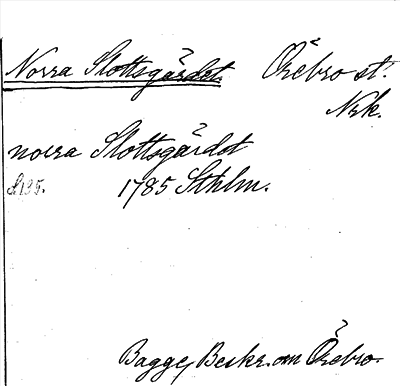 Norra Slottsgärdet. Örebro st.
Nrk.
norra Slottsgärdet
1785 Sthlm.
Bagge, Beskr. om Örebro.